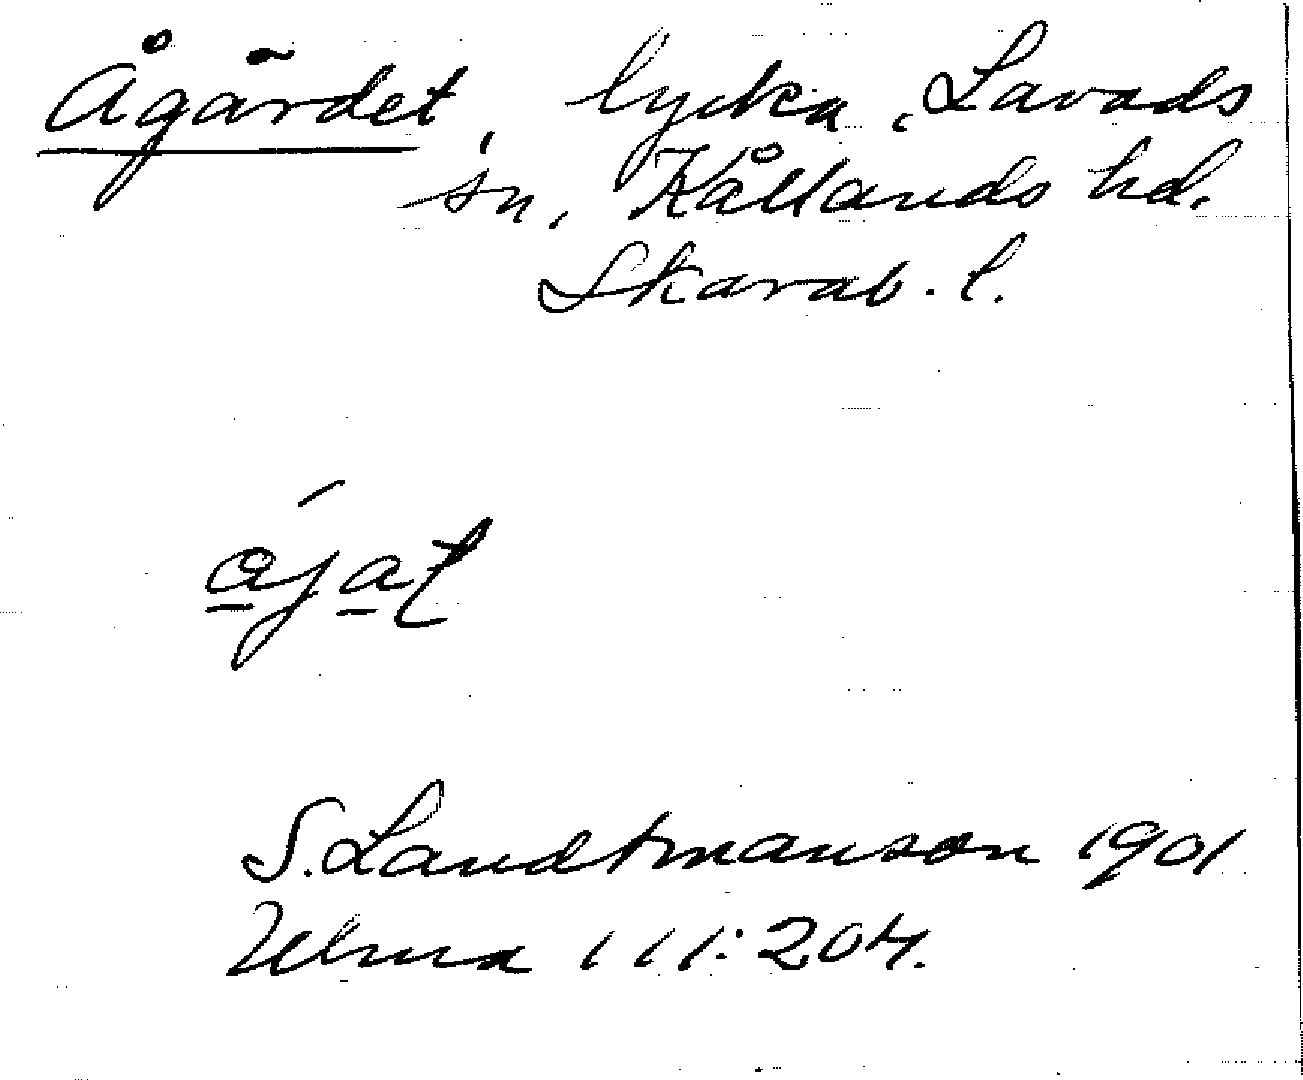 Ågärdet, lycka, Lavads
sn, Kållands hd.
Skarab. l.
S. Landtmanson 1901
Ulma 111:204.